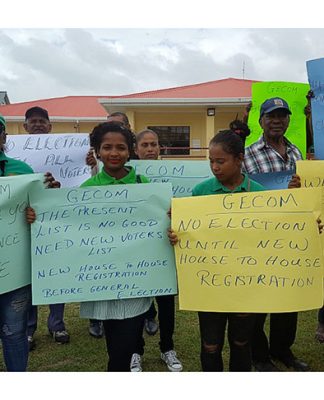 GECOM
O ELECTION
ALL
VOTERS
GECOM
THE PRESENT
LIST IS NO GOOD
NEED NEW VOTERS
LIST
NEW HOUSE TO HOUSE
REGISTRATION
BEFORE GENERAL
ELECTION
GECOM
NO ELECTION
UNTIL NEW
HOUSE TO HOUSE
REGISTRATION